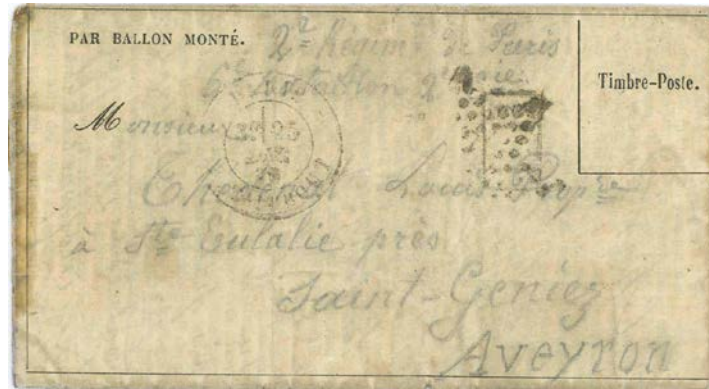 PAR BALLON MONTÉ.
2e Régimt de Paris
6e Bataillon 2e Cie
Timbre-Poste.
Monsieur
Louis Propre
à Ste Eulalie près
Saint-Geniez
Aveyron